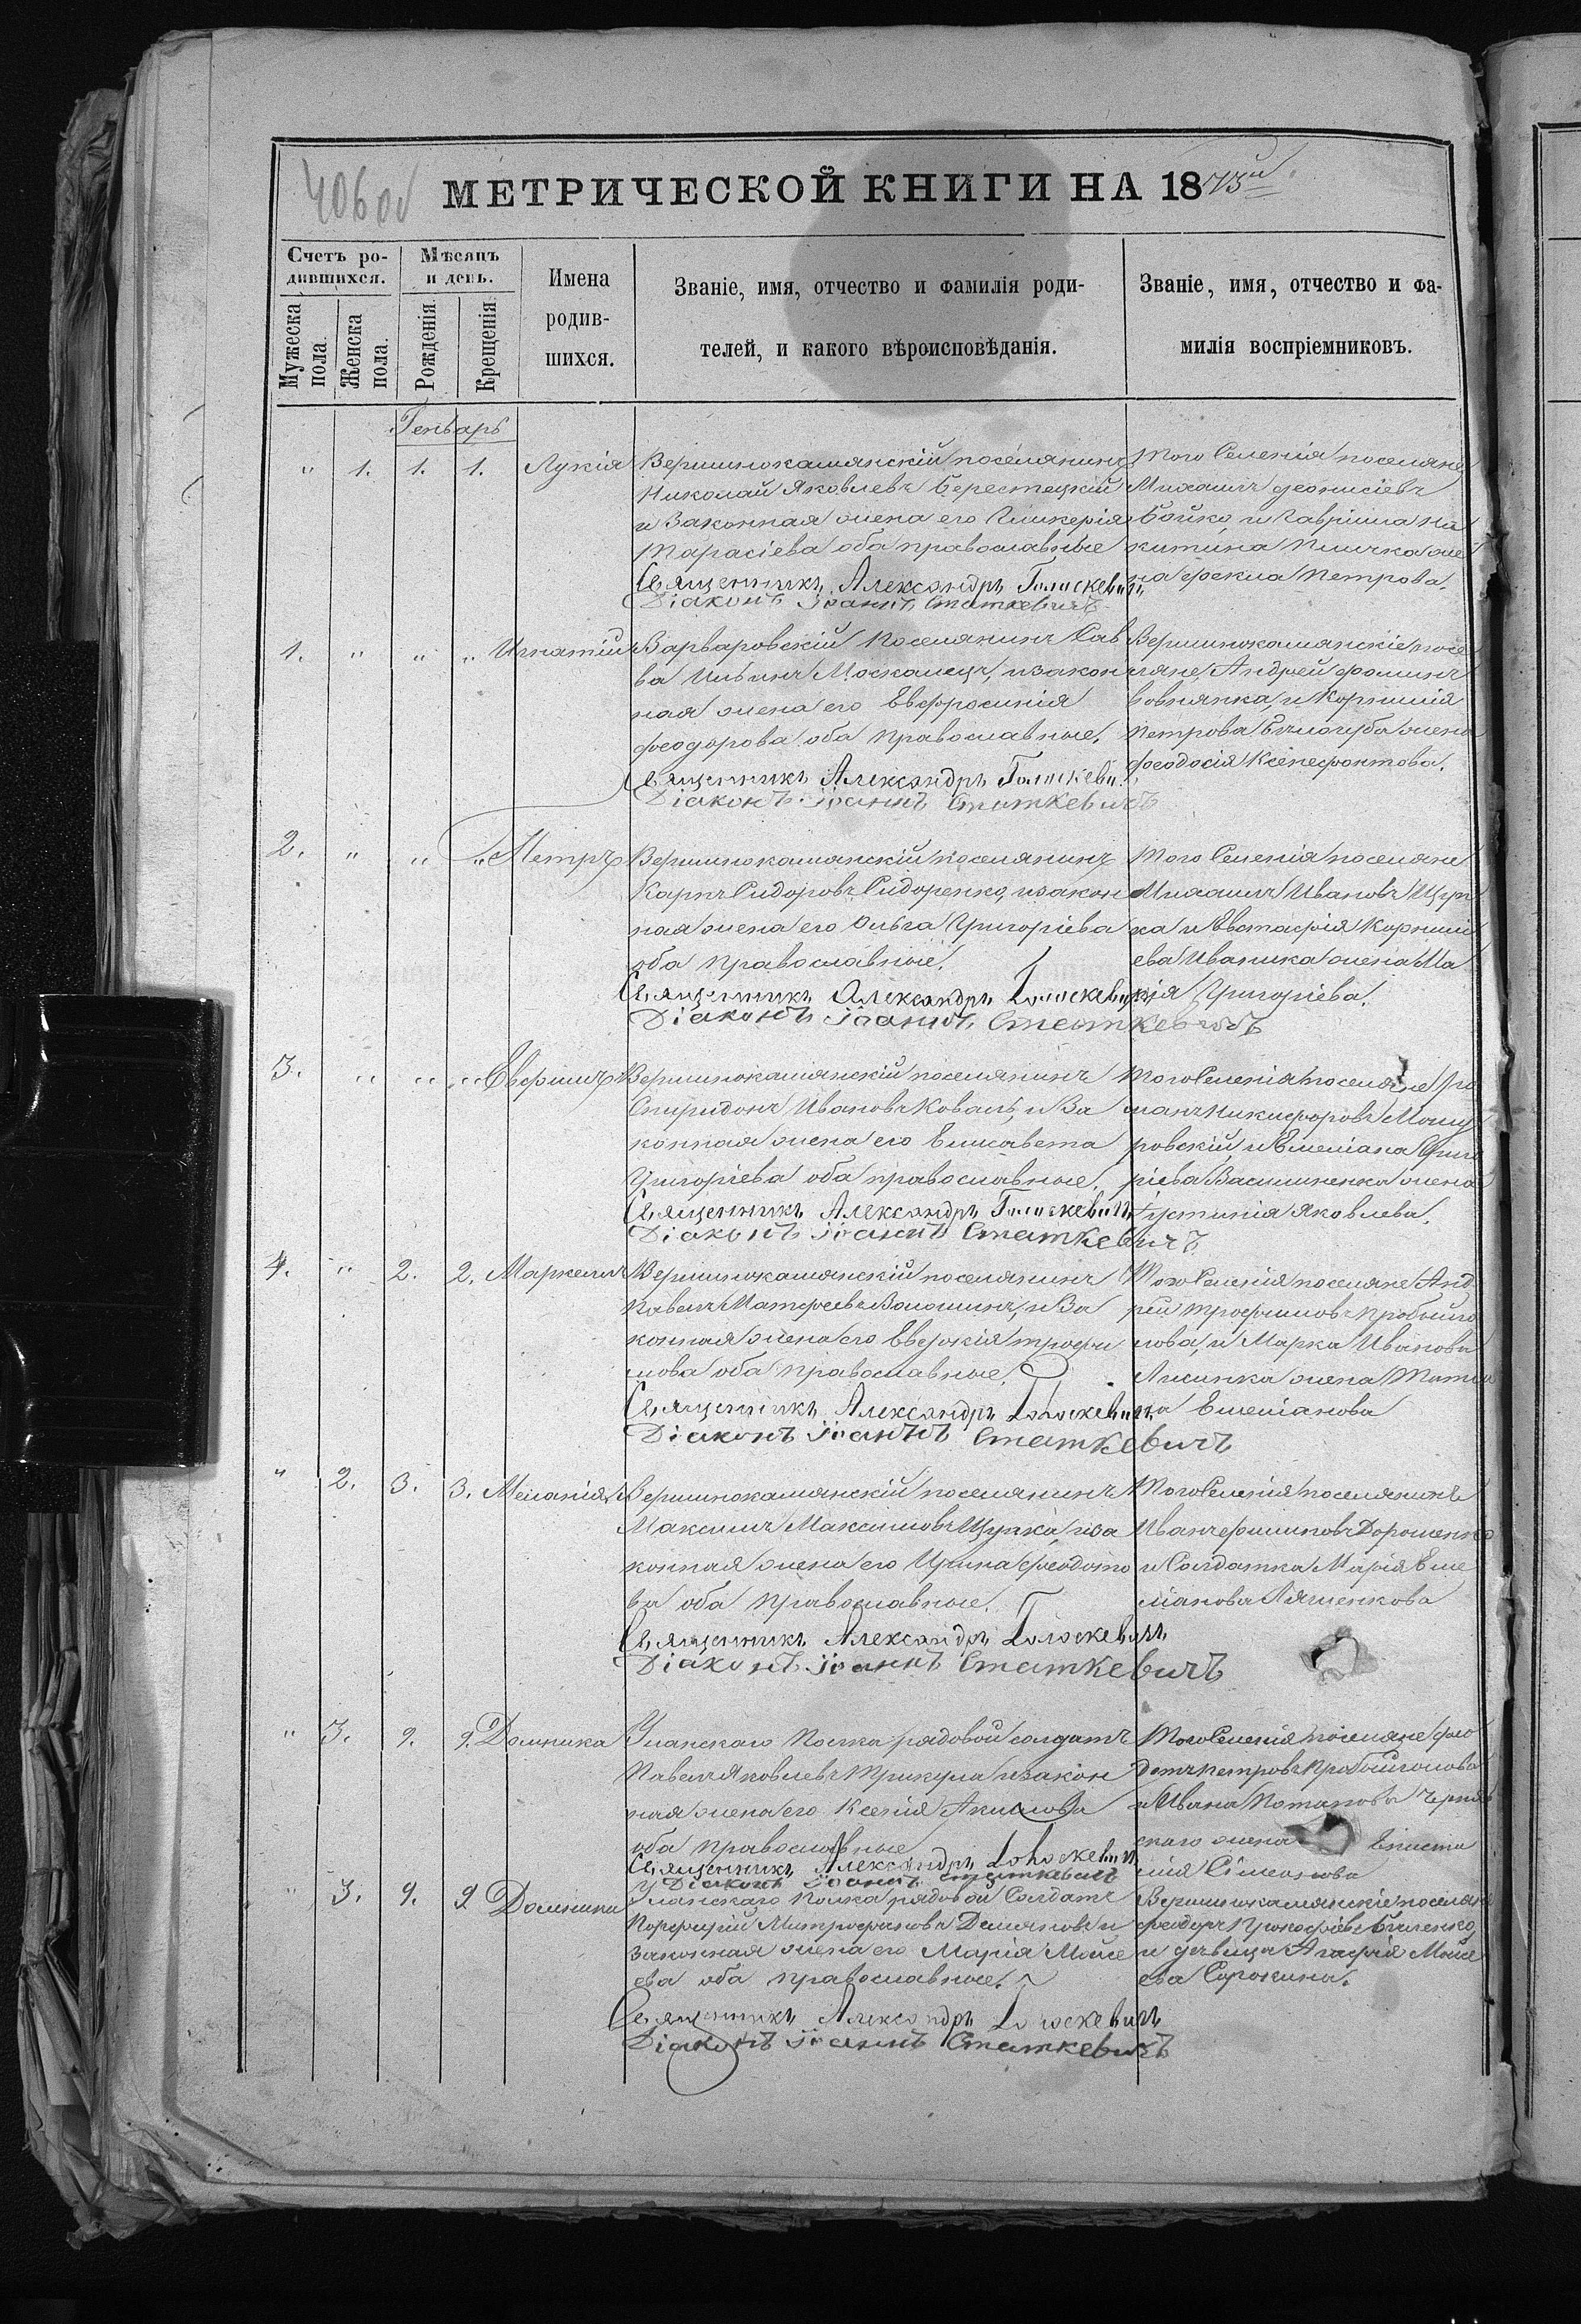 406об
МЕТРИЧЕСКОЙ КНИГИ НА 1873й
Счетъ ро-
дившихся.
Мужеска
пола.
Женска
пола.
Мѣсяцъ
и день.
Рожденія
Крещенія
Имена
родив-
шихся.
Званіе, имя, отчество и фамилія роди-
телей, и какого вѣроисповѣданія.
Званіе, имя, отчество и фа-
милія воспріемниковъ.
Генварь
" 1. 1. 1. Лукія
Вершинокамянскій поселянинъ
Николай Яковлевъ Берестецкій
и законная жена его Гликерія
Тарасіева оба православные
Священникъ Александръ Голоскевичъ
Діаконъ Іоаннъ Статкевичъ
Того Селенія поселяне
Михаилъ Деонисіевъ
Бойко, и Гавриила Ни
китина жe
на Фекла Петрова.
1. " " " Игнатій
Варваровскій поселянинъ Сав
ва Ильинъ Москалецъ, и закон
ная жена его Евфросинія
Феодорова оба православные.
Священникъ Александръ Голоскеви.
Діаконъ Іоаннъ Статкевичъ
Вершинокамянскіе посе
ляне, Андрей Фоминъ
Вовнянка, и Корнилія
Петрова Бѣлогуба жена
Феодосія Ксенефонтова.
2. " " " Петръ
Вершинокамянскій поселянинъ
Карпъ Сидоровъ Сидоренко, и закон
ная жена его Ольга Григоріева
оба православные.
Священникъ Александръ Голоскевичъ
Діаконъ Іоаннъ Статкевичъ
Того Селенія поселяне
Михаилъ Ивановъ Щуп
ка и Евстафія Корнил
ева Иваника жена Ма
рія Григоріева.
3. " " " Евфимъ
Вершинокамянскій поселянинъ
Спиридонъ Ивановъ Коваль, и за
конная жена его Елисавета
Григоріева оба православные.
Священникъ Александръ Голоскевичъ
Діаконъ Іоаннъ Статкевичъ
Того Селенія поселяне Ро
манъ Никифоровъ Мошу
ровскій, и Емеліана Григо
ріева Василиненка жена
Іустинія Яковлева.
4. " 2. 2. Маркелъ
Вершинокамянскій поселянинъ
Павелъ Матфеевъ Волошинъ, и за
конная жена его Евдокія Трофи
мова оба православные.
Священникъ Александръ Голоскевичъ
Діаконъ Іоаннъ Статкевичъ
Того Селенія поселяне Анд
рей Трофимовъ Пробойго
лова, и Марка Иванова
Лисинка жена Татіа
на Емеліанова
" 2. 3. 3. Меланія
Вершинокамянскій поселянинъ
Максимъ Максимовъ Щупка, и за
конная жена его Ирина Феодото
ва оба православные.
Священникъ Александръ Голоскевичъ
Діаконъ Іоаннъ Статкевичъ
Того Селенія поселянинъ
Иванъ Филиповъ Дорошенко
и Солдатка Марія Еме
ліанова Ляшенкова
" 3. 9. 9. Домника
Уланскаго Полка рядовой солдатъ
Павелъ Яковлевъ Трикула и закон
ная жена его Ксенія Акимова
оба православные
Священникъ Александръ Голоскевичъ
Діаконъ Іоаннъ Статкевичъ
Того Селенія поселяне Фео
дотъ Петровъ Пробойголова
и Ивана Потапова Черняв
скаго жена Еписти
мія Сімеонова
" 3. 9. 9 Домникія
Уланскаго Полка рядовой Солдатъ
Порфирій Митрофановъ Демяновъ и
законная жена его Марія Мойсе
ева оба православные.
Священникъ Александръ Голоскевичъ
Діаконъ Іоаннъ Статкевичъ
Вершинокамянскіе поселяне
Феодоръ Прокофіевъ
и дѣвица Агафія Мойсе
ева Сорокина.